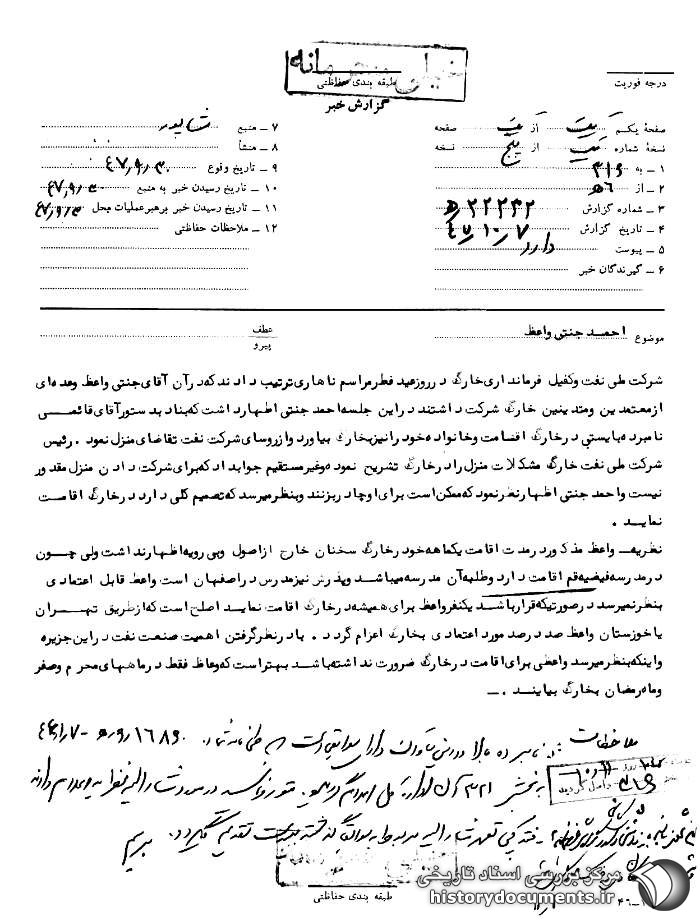 خیلی محرمانه
طبقه بندی حفاظتی
گزارش خبر
درجه فوریت
صفحهٔ یکم از صفحه
نسخهٔ شماره از پنج نسخه
۱ – به ۳۱۶
۲ – از ۵۶
۳ – شماره گزارش ۲۲۲۴۲/۵
۴ – تاریخ گزارش ۴۷/۱۰/۷
۵ – پیوست دارد
۶ – گیرندگان خبر
۷ – منبع شاپور
۸ – منشأ
۹ – تاریخ وقوع ۴۷/۹/۳۰
۱۰ – تاریخ رسیدن خبر به منبع ۴۷/۹/۳۰
۱۱ – تاریخ رسیدن خبر برهبر عملیات محل ۴۷/۹/۳۰
۱۲ – ملاحظات حفاظتی
موضوع احمد جنتی واعظ
عطف
پیرو
شرکت ملی نفت وکفیل فرمانداری خارگ در روز عید فطر مراسم ناهاری ترتیب دادند که در آن آقای جنتی واعظ وعده ای
از معتمدین ومتدینین خارگ شرکت داشتند در این جلسه احمد جنتی اظهار داشت که بنا بدستور آقای قائمی
نامبرده بایستی در خارگ اقامت وخانواده خود را نیز بخارگ بیاورد واز روسای شرکت نفت تقاضای منزل نمود . رئیس
شرکت ملی نفت خارگ مشکلات منزل را در خارگ تشریح نموده وغیر مستقیم جواب داد که برای شرکت دادن منزل مقدور
نیست واحمد جنتی اظهارنظر نمود که ممکن است برای او چادر بزنند وبنظر میرسد که تصمیم کلی دارد در خارگ اقامت
نماید .
نظریه – واعظ مذکور در مدت اقامت یکماهه خود در خارگ سخنان خارج از اصول وبی رویه اظهار نداشت ولی چون
در مدرسه فیضیه قم اقامت دارد وطلبه آن مدرسه میباشد وپدرش نیز مدرس در اصفهان است واعظ قابل اعتمادی
بنظر نمیرسد در صورتیکه قرار باشد یکنفر واعظ برای همیشه در خارگ اقامت نماید اصلح است که از طریق تهران
یا خوزستان واعظ صد در صد مورد اعتمادی بخارگ اعزام گردد . با در نظر گرفتن اهمیت صنعت نفت در این جزیره
واینکه بنظر میرسد واعظی برای اقامت در خارگ ضرورت نداشته باشد بهتر است که وعاظ فقط در ماههای محرم وصفر
وماه رمضان بخارگ بیایند . –
ملاحظات : نامبرده بالا دارای سوابقی است طی نامه شماره
به بخش ۳۲۱
طبقه بندی حفاظتی
مرکز بررسی اسناد تاریخی
historydocuments.ir